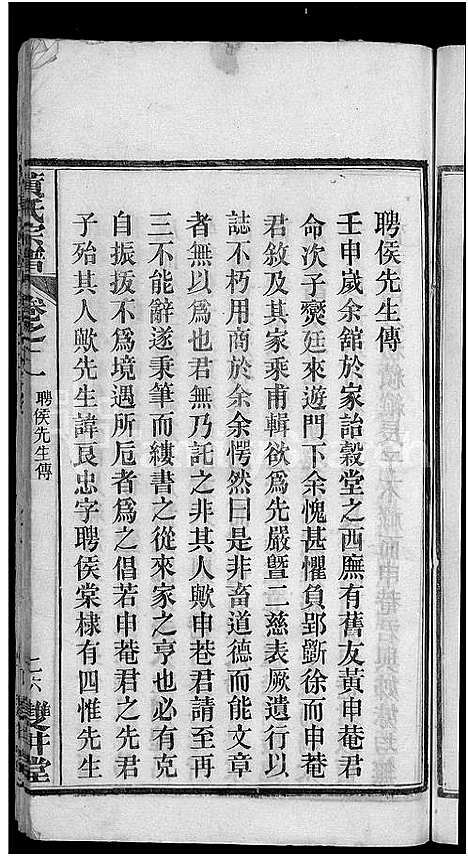 聘侯先生傳
壬申歲余舘於家詒穀堂之西廡有舊友黃申菴君
命次子爕廷來遊門下余愧甚懼負郢斵徐而申菴
君敘及其家乘甫輯欲為先嚴暨二慈表厥遺行以
誌不朽用商於余余愕然曰是非畜道德而能文章
者無以為也君無乃託之非其人歟申菴君請至再
三不能辭遂秉筆而縷書之從來家之亨也必有克
自振拔不為境遇所厄者為之倡若申菴君之先君
子殆其人歟先生諱良忠字聘侯棠棣有四惟先生
黃氏宗譜
卷之
聘侯先生傳
雙井堂